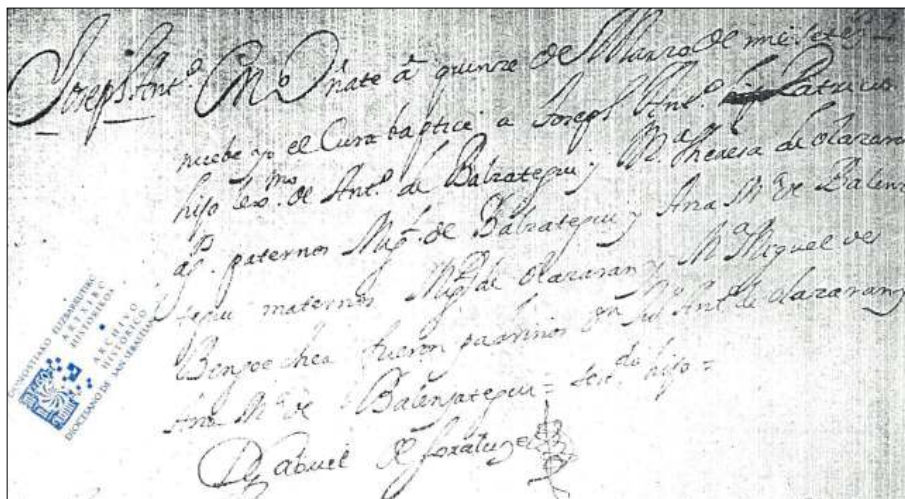 Joseph Antº. En Oñate à quinze de Marzo de mil setezº.
nuebe yo el Cura baptice a Joseph Antº. Patricio
hijo lexmo. de Antº. de Balzategui y Mª. Theresa de olazaran
ap. paternos Migl. de Balzategui y Ana Mª. de Balenz
tegui maternos Migl. de olazaran y Mª. Miguel de
Bengochea fueron padrinos Dn Antº. de olazaran y
Ana Mª. de Balenzategui = hijo =
de
DONOSTIAKO ELIZBARRUTIKO
ARTXIBO
HISTORIKOA
ARCHIVO
HISTÓRICO
DIOCESANO DE SAN SEBASTIÁN